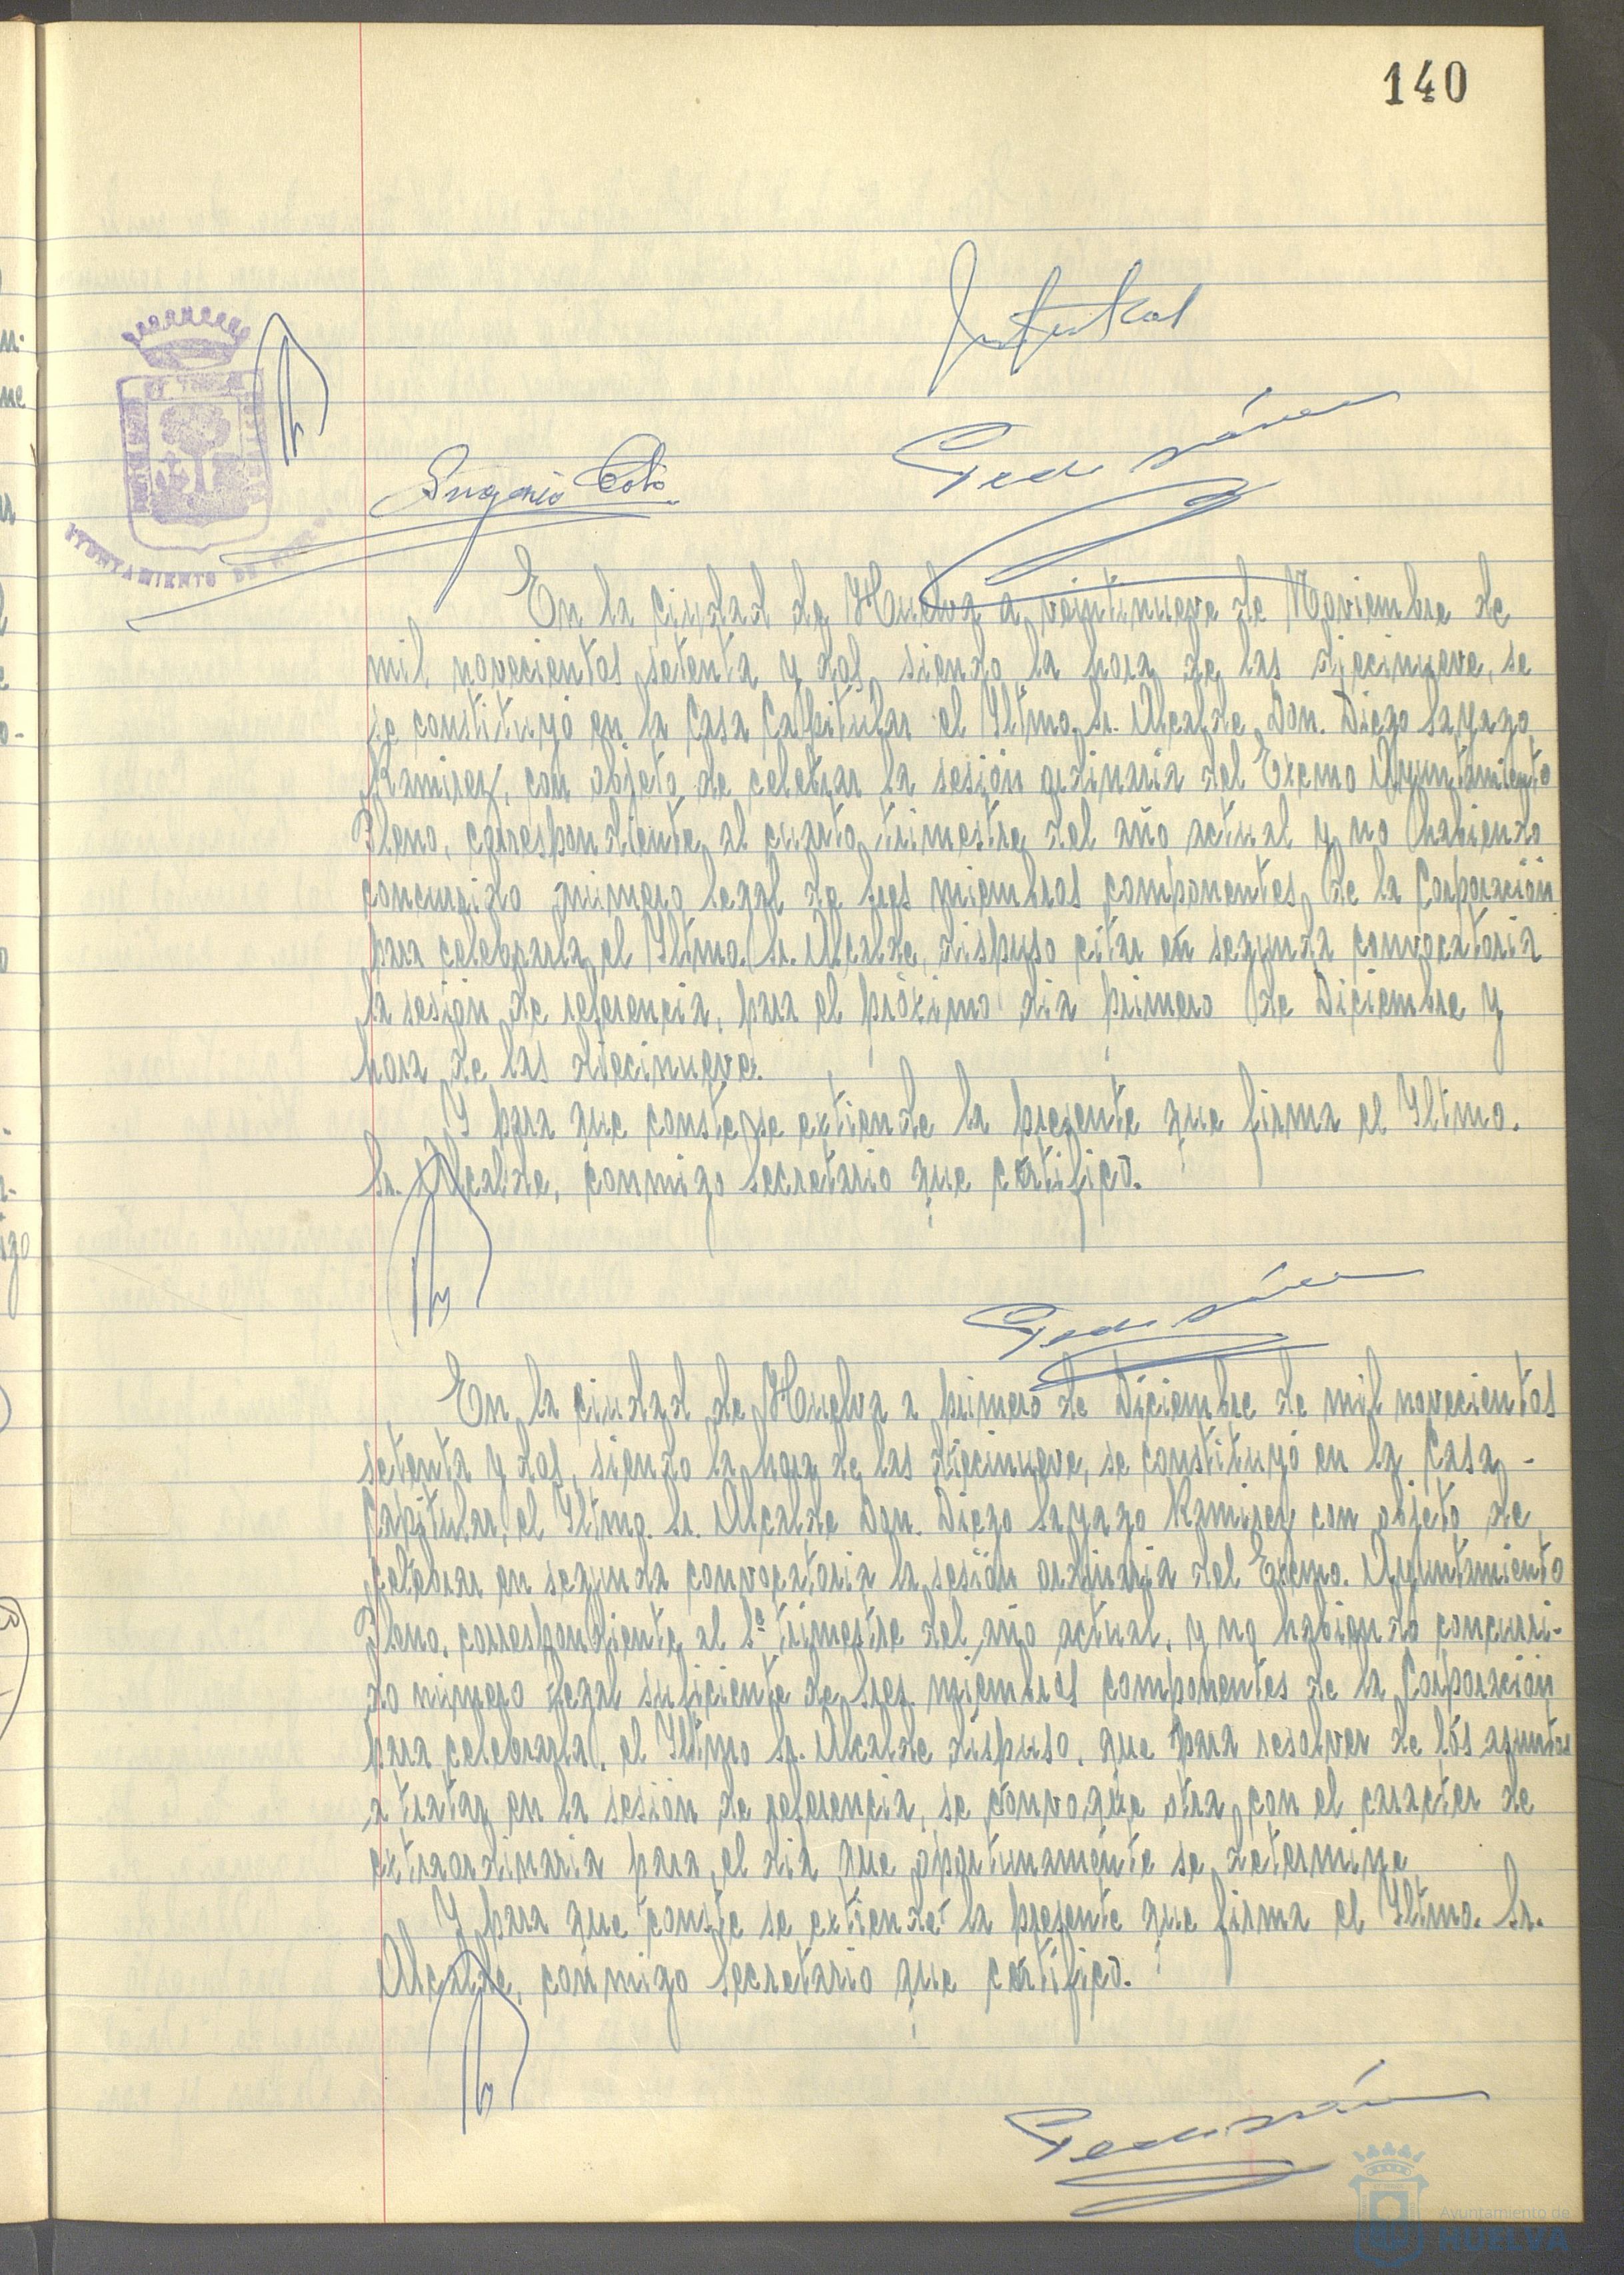 140
AYUNTAMIENTO DE
Eugenio
En la ciudad de Huelva a veintinueve de Noviembre de
mil novecientos setenta y dos siendo la hora de las diecinueve, se
se constituyó en la Casa Capitular el Iltmo. Sr. Alcalde, Don. Diego Sayago
Ramirez, con objeto de celebrar la sesión ordinaria del Excmo Ayuntamiento
Pleno, correspondiente al cuarto trimestre del año actual y no habiendo
concurrido número legal de Sres miembros componentes de la Corporación
para celebrarla, el Iltmo. Sr. Alcalde, dispuso citar en segunda convocatoria
la sesión de referencia, para el próximo dia primero de Diciembre y
hora de las diecinueve.
Y para que conste se extiende la presente que firma el Iltmo.
Sr. Alcalde, conmigo Secretario que certifico.
En la ciudad de Huelva a primero de Diciembre de mil novecientos
setenta y dos, siendo la hora de las diecinueve, se constituyó en la Casa -
Capitular, el Iltmo. Sr. Alcalde Don. Diego Sayago Ramirez con objeto de
celebrar en segunda convocatoria la sesión ordinaria del Excmo. Ayuntamiento
Pleno, correspondiente al trimestre del año actual, y no habiendo concurri-
do número legal suficiente de Sres. miembros componentes de la Corporación
para celebrarla, el Iltmo Sr. Alcalde dispuso, que para resolver de los asuntos
a tratar en la sesión de referencia, se convoque otra con el caracter de
extraordinaria para el dia que oportunamente se determine
Y para que conste se extiende la presente que firma el Iltmo. Sr.
Alcalde, conmigo Secretario que certifico.
Ayuntamiento de
HUELVA